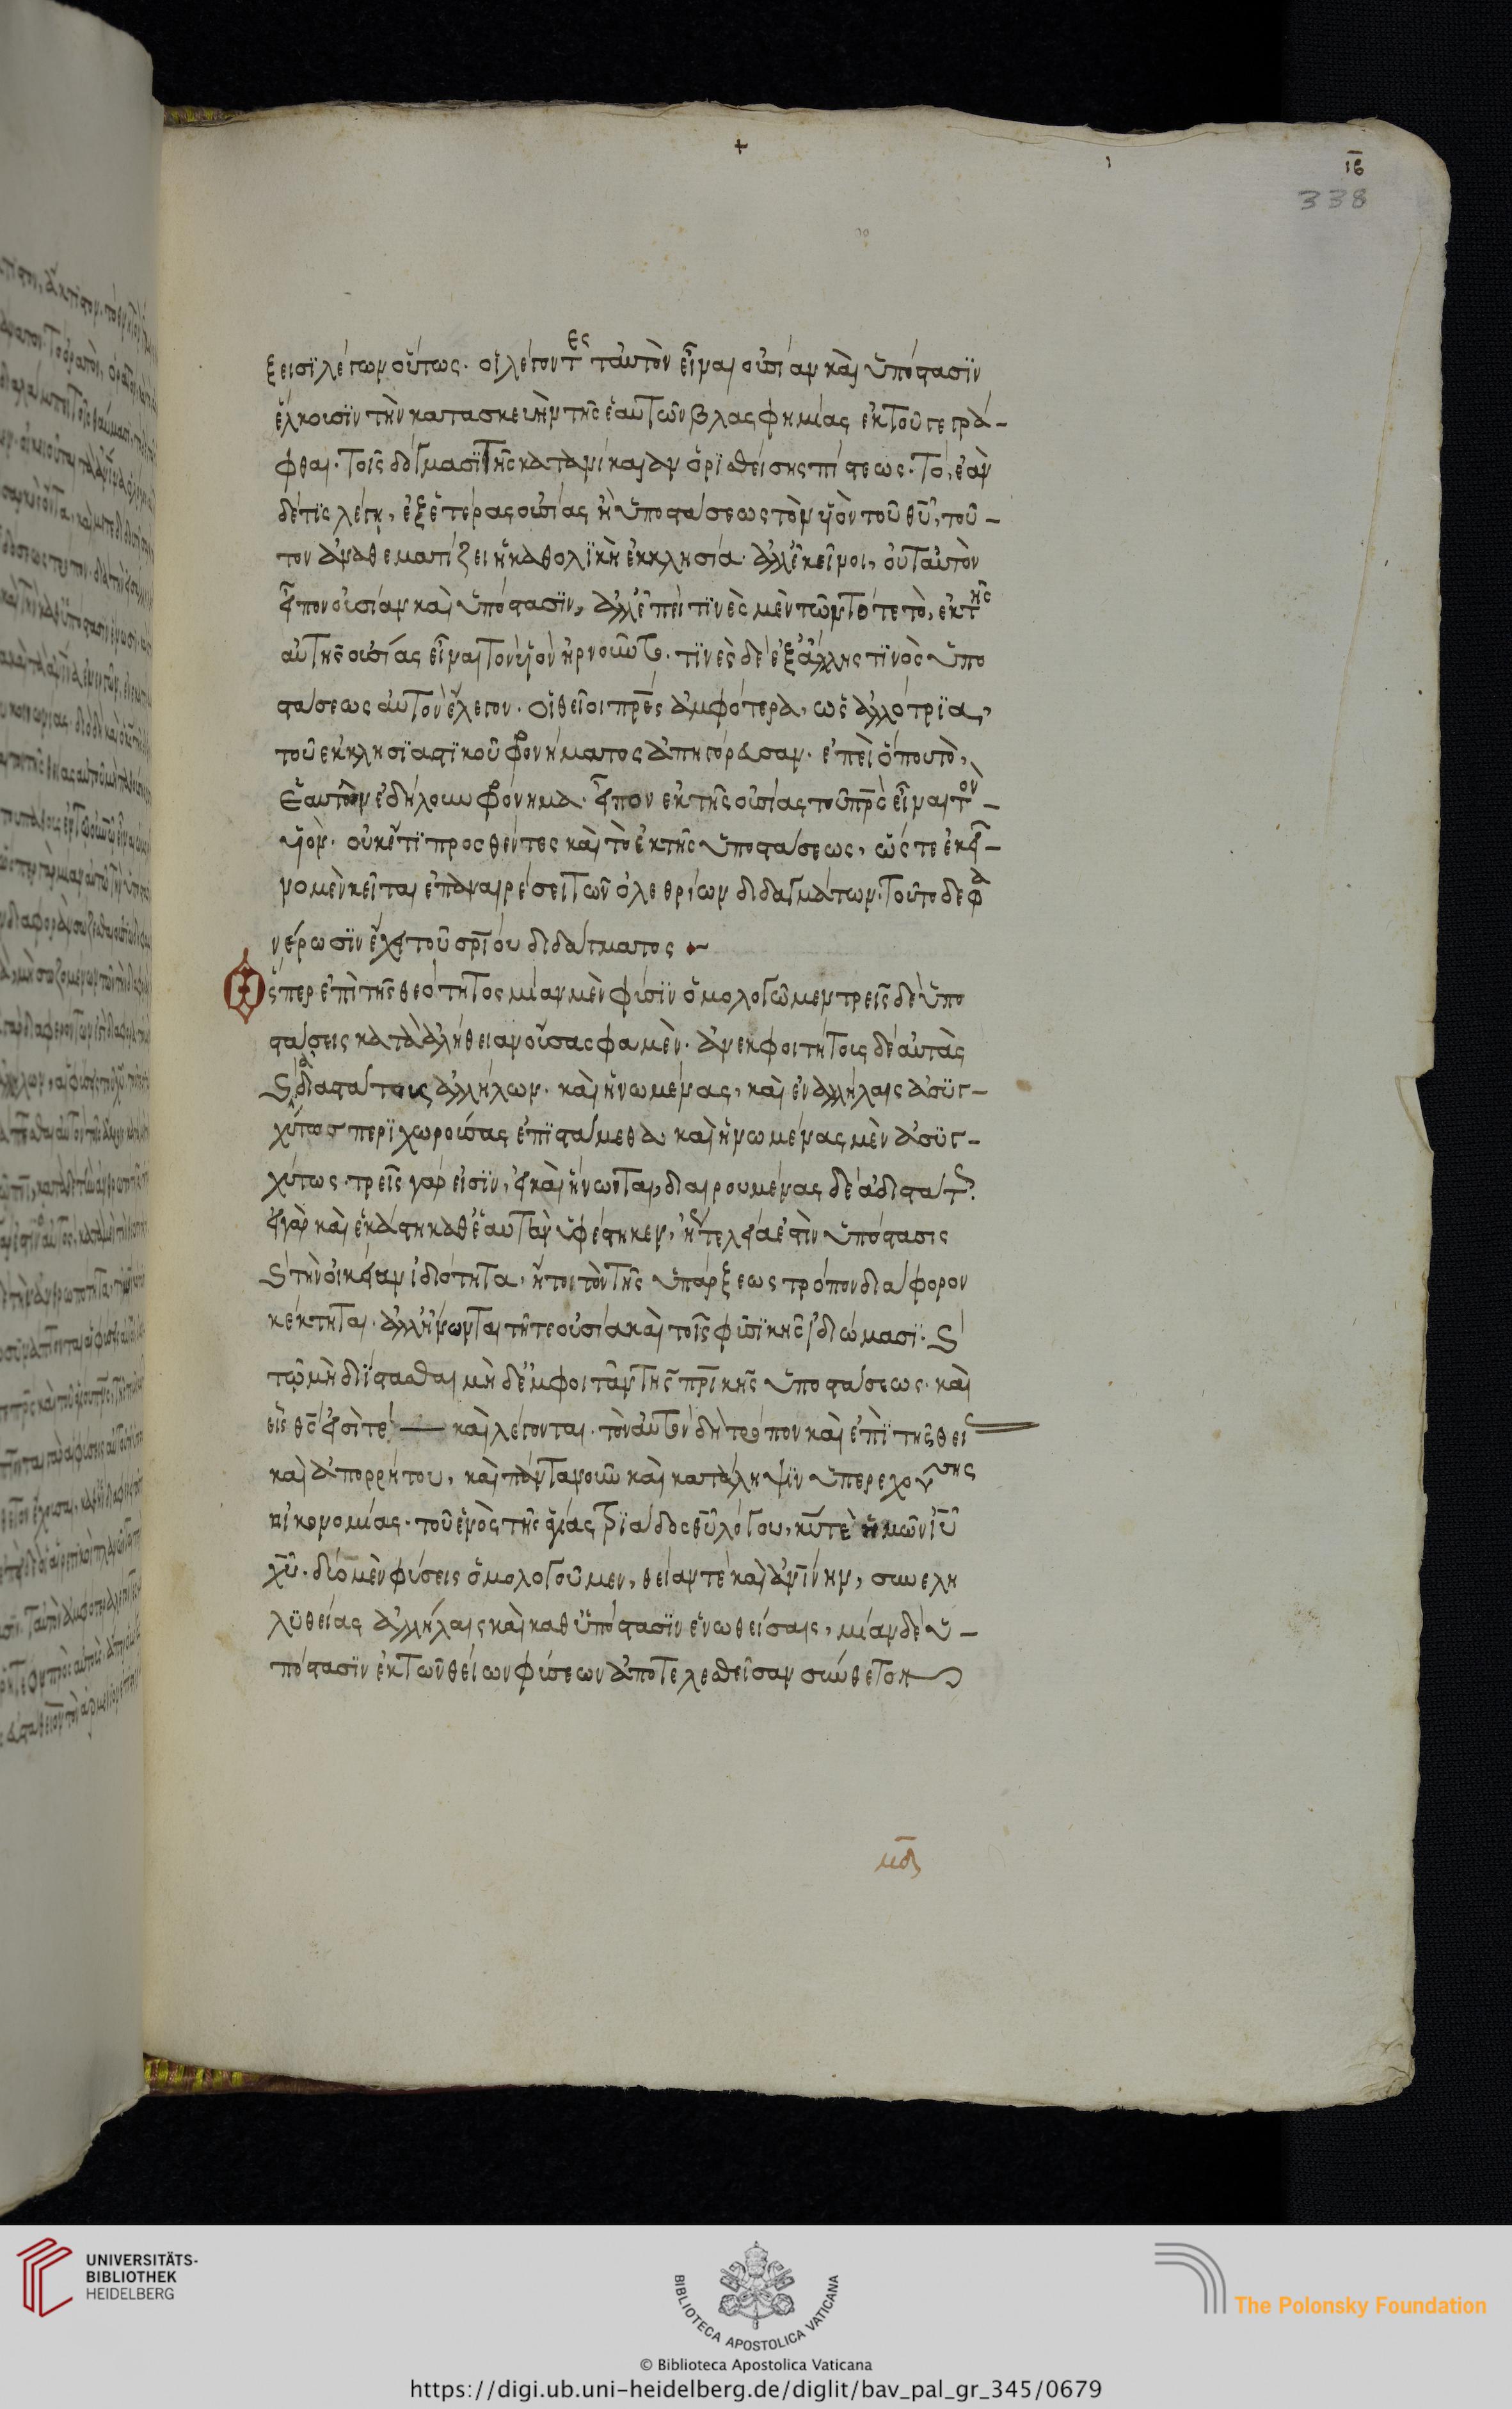 +
ιϛ
338
ξεισϊ λέγων οὕτως. οἱ λέγοντες ταὐτὸν εἶναι οὐσίαν καὶ ὑπόστασϊν
ἕλκουσϊν τὴν κατασκευὴν τῆς ἑαυτῶν βλασφημίας ἐκ τοῦ γεγρά-
φθαι. τοῖς δόγμασϊ τῆς κατα νίκαιαν ὁρϊσθείσης πίστεως. τὸ, ἐὰν
δέ τϊς λέγη, ἐξ ἑτέρας οὐσίας ἢ ὑποστάσεως τὸν υἱὸν τοῦ θῦ, τοῦ-
τον ἀναθεματίζει ἡ καθολϊκὴ ἐκκλησία. ἀλλ' ἐκεῖνοι, οὐ ταὐτὸν
εἶπον οὐσίαν καὶ ὑπόστασϊν, ἀλλ' ἐπεὶ τϊνὲς μὲν τῶν τότε τὸ, ἐκ τῆς
αὐτῆς οὐσίας εἶναι τὸν υἱὸν ἠρνοῦντο. τϊνὲς δὲ ἐξ ἄλλης τϊνὸς ὑπο
στάσεως αὐτὸν ἔλεγον. οἱ θεῖοι πρ̅ες ἀμφότερα, ὡς ἀλλότρϊα,
τοῦ ἐκκλησϊαστϊκοῦ φρονήματος ἀπηγόρευσαν. ἐπεὶ ὅπου τὸ,
ἑαυτῶν ἐδήλουν φρόνημα. εἶπον ἐκ τῆς οὐσίας τοῦ πρ̅ς εἶναι τὸν-
υἱὸν. οὐκ ἔτϊ προσθέντες καὶ τὸ ἐκ τῆς ὑποστάσεως, ὥστε ἐκεῖ-
νο μὲν κεῖται ἐπ' ἀναιρέσει τῶν ὀλεθρίων διδαγμάτων. τοῦτο δὲ φα
νέρωσϊν ἔχει τοῦ σρ̅ΐου διδάγματος
Ὥσπερ ἐπὶ τῆς θεότητος μίαν μὲν φύσϊν ὁμολογῶμεν τρεῖς δὲ ὑπο
στάσεις κατὰ ἀλήθειαν οὔσας φαμὲν. ἀνεκφοιτήτους δὲ αὐτὰς
ϗ ἀδϊαστάτους ἀλλήλων. καὶ ἡνωμένας, καὶ ἐν ἀλλήλαις ἀσϋγ-
χύτως περϊχωρούσας ἐπϊστάμεθα καὶ ἡνωμένας μὲν ἀσϋγ-
χύτως. τρεῖς γάρ εἰσϊν, εἰ καὶ ἥνωνται, διαιρουμένας δὲ ἀδιαστάτ.
εἰ γὰρ καὶ ἑκάστη καθ' ἑαυτὴν ὑφέστηκεν, ἤγουν τελεία ἐστὶν ὑπόστασις
ϗ τὴν οἰκείαν ἰδιότητα, ἤτοι τὸν τῆς ὑπάρξεως τρόπον διάφορον
κέκτηται. ἀλλ' ἥνωνται τῆ τε οὐσία καὶ τοῖς φυσϊκοῖς ἰδιώμασϊ. ϗ
τῶ μὴ δϊίστασθαι μὴ δὲ ἐκφοιτᾶν τῆς πρ̅ϊκῆς ὑποστάσεως. καὶ
εἷς θς̅ εἰσί τε — καὶ λέγονται. τὸν αὐτὸν δὴ τρόπον καὶ ἐπϊ τῆς θεί
καὶ ἀπορρήτου, καὶ πάντα νοῦν καὶ κατάληψϊν ὑπερεχούσης
οἰκονομίας. τοῦ ἑνὸς τῆς ἁγίας τρϊάδος θῦ λόγου, κῦ τε ἡμῶν ἰ̅υ
χ̅υ. δύο μὲν φύσεις ὁμολογοῦμεν, θείαν τε καὶ ἀνΐνην, συνελη
λϋθείας ἀλλήλαις καὶ καθ' ὑπόστασϊν ἑνωθείσαις, μίαν δὲ ὑ-
πόστασϊν ἐκ τῶν θείων φύσεων ἀποτελεσθεῖσαν σύνθετον
μδ
UNIVERSITÄTS-
BIBLIOTHEK
HEIDELBERG
BIBLIOTECA APOSTOLICA VATICANA
The Polonsky Foundation
© Biblioteca Apostolica Vaticana
https://digi.ub.uni-heidelberg.de/diglit/bav_pal_gr_345/0679